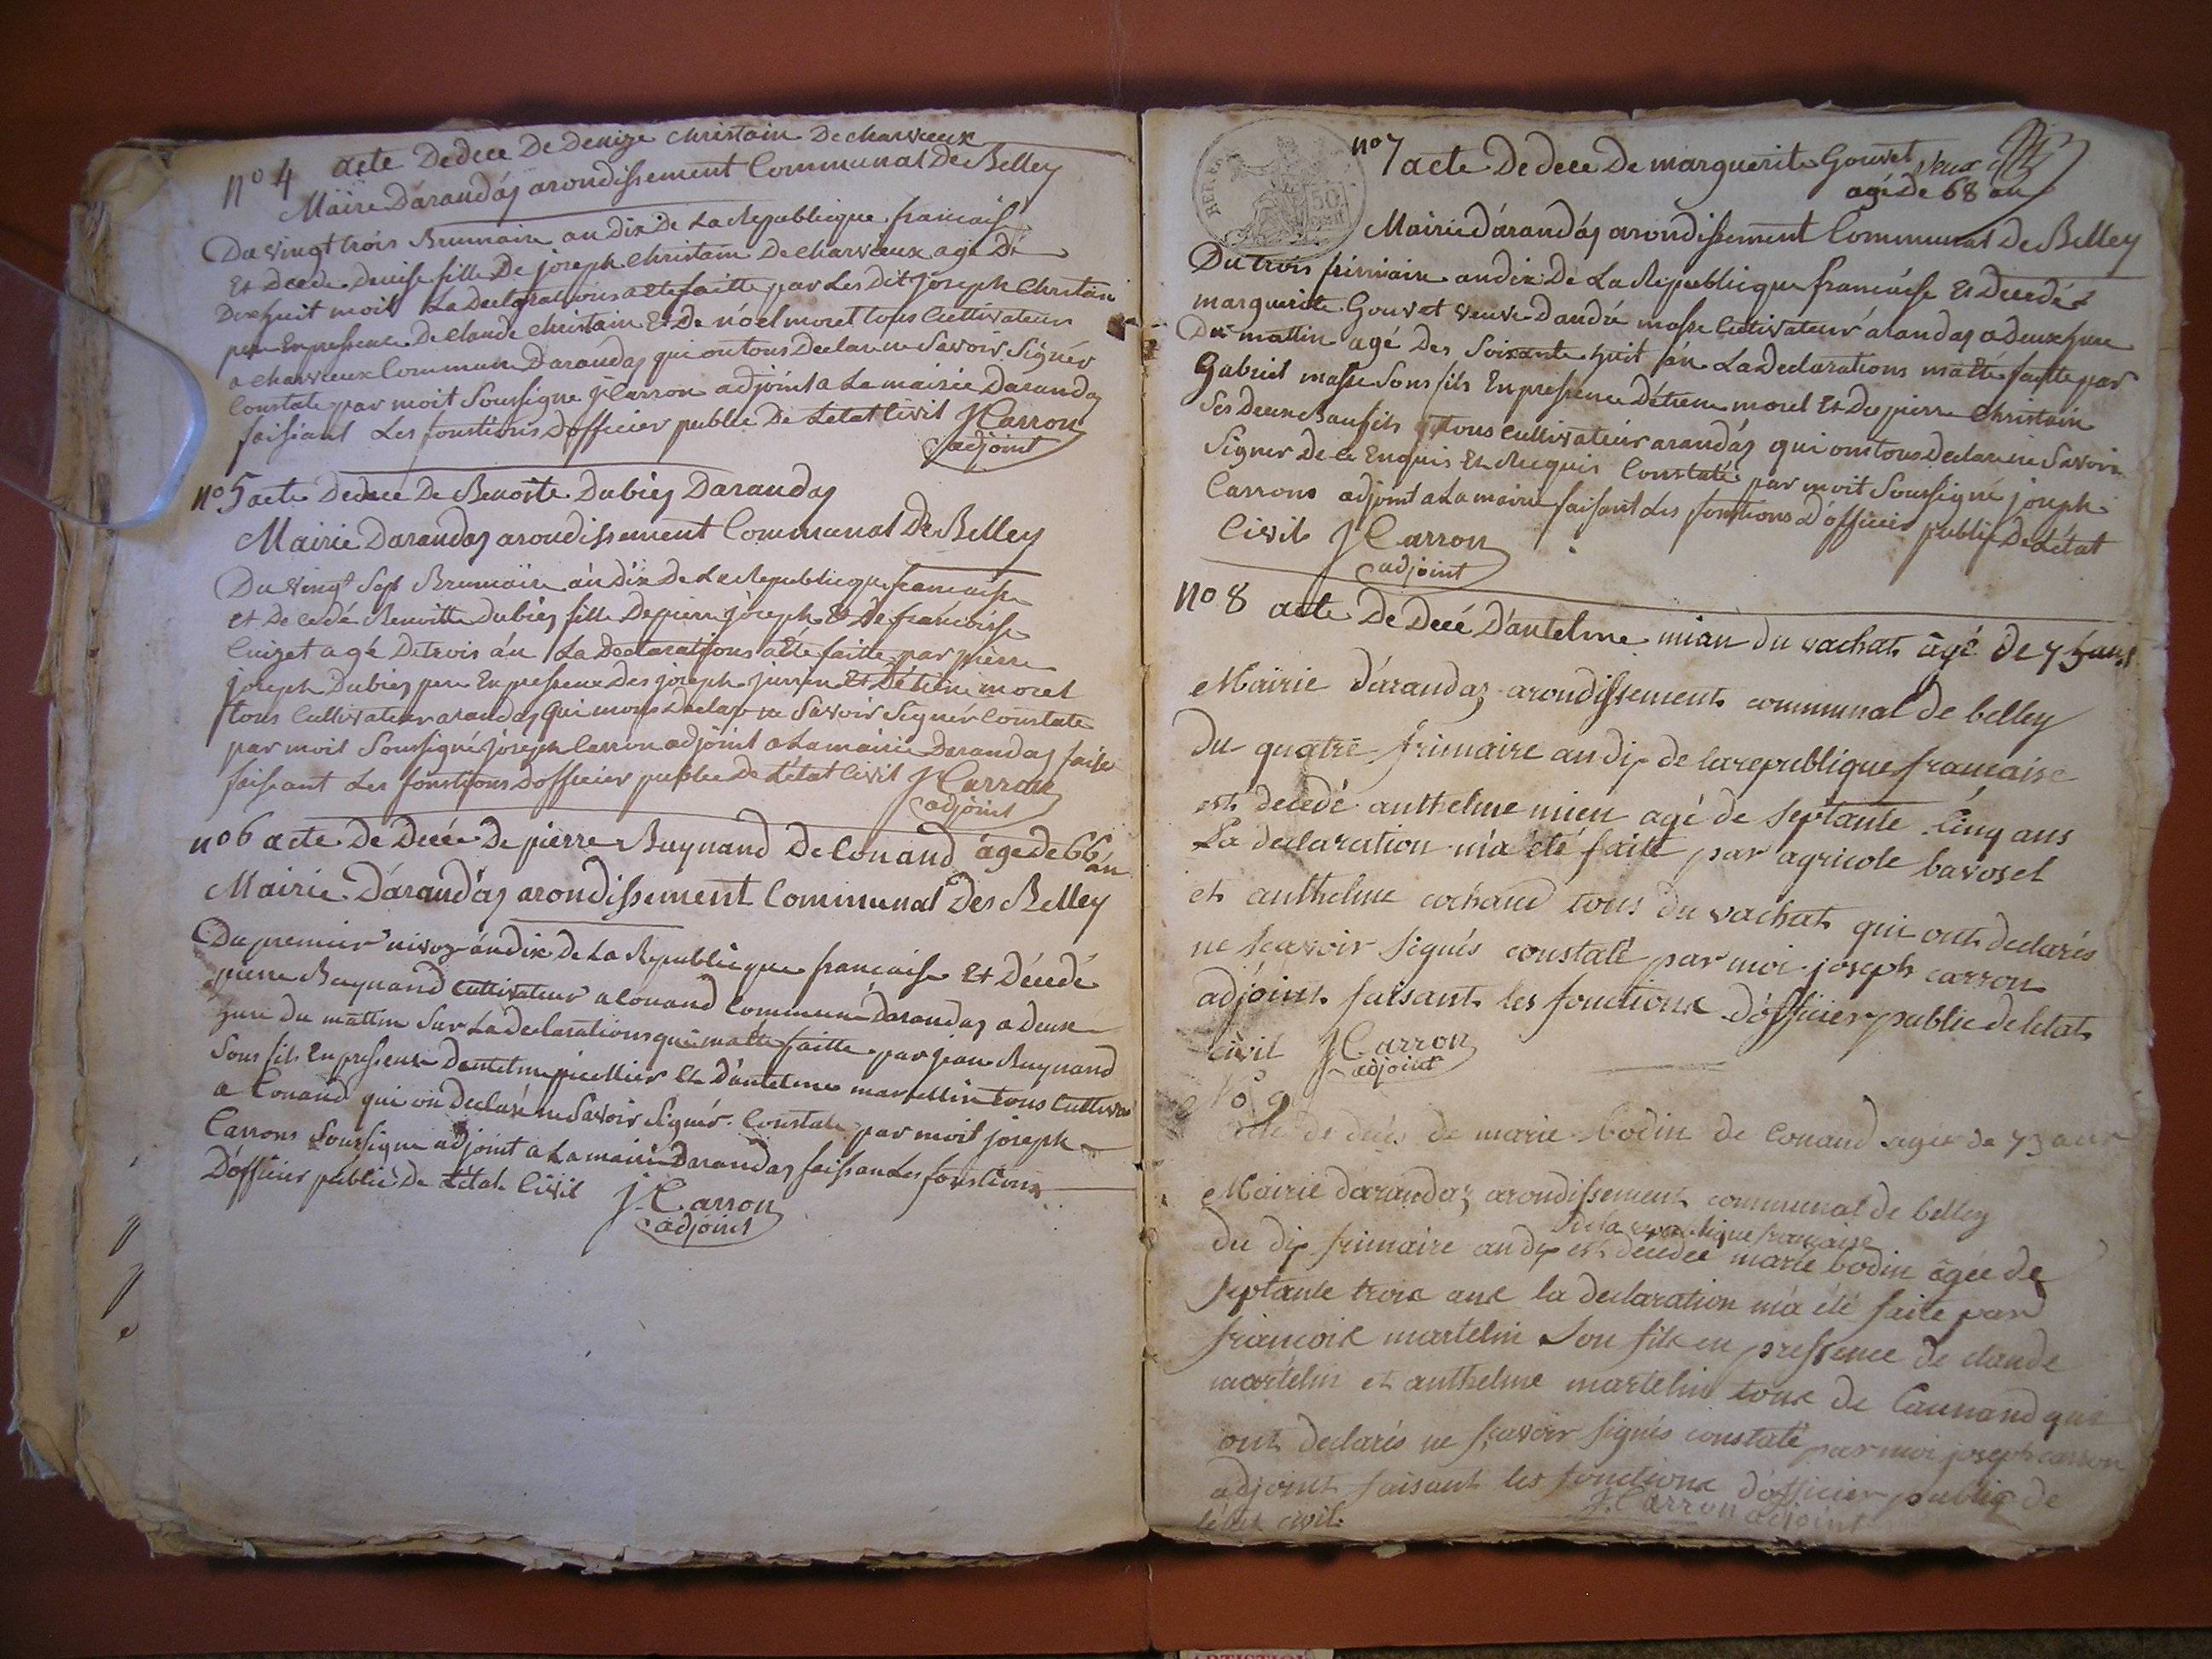 n° 4 acte De dece De Denize christain De charvieux
Mairie D'arandas arondissement Communal De Belley
Du vingt trois Brumaire an dix De La Republicque francaise
Et Decede Denise fille De joseph christain De charvieux age De
Dix huit mois La Declarations a ete faitte par Les Dit joseph Christain
pere En pressence De Claude christain Et De noel moret tous Cultivateur
a charvieux Commune Darandas qui on tous Declare ne Savoir Signér
Constate par moit Soussigne J Carron adjoint a La mairie Darandas
faisiant Les fonstions Dofficier public De Letat Civil J Carron
adjoint
n° 5 acte De dece De Benoite Dubies Darandas
Mairie Darandas arondissement Communal De Belley
Du vingt Sept Brumaire an Dix De La Republicque francaise
et De cedé Benoitte Dubies fille De pierre joseph Et De francoise
Cuizet agé De trois án La Declarations a été faitte par pierre
joseph Dubies pere En pressence Des joseph jurren Et Détiene moret
tous Cultivateur arandas Qui mons Declare ne Savoir Signér Constate
par moit Soussigné joseph Carron adjoint a La mairie Darandas faise
faissant Les fonstions Dofficier public De Létat Civil J Carron
adjoint
n° 6 acte De Decée De pierre Buynand De Conand age De 66 án
Mairie D'arandas arondissement Communal Des Belley
Du premier nivoz án dix De La Republicque francaise Et Décedé
pierre Buynand Cultivateur a Conand Commune Darandas a Deuse
hure Du mattin Sur La Declarations qui matte faitte par jean Buynand
Sons fils En pressence Dantelme picellier Et D'antelme martellin tous Cultiva
a Conand qui on Declaré ne Savoir Signér Constate par moit joseph
Carrons Soussigne adjoint a La mairie Darandas faissan Les fonstions
Dofficier public De Létat Civil J. Carron
adjoint
n° 7 acte De dece De marguerite Gouvet
agé De 68 an
REP. FRA 50 CENT
Mairie D'arandas arondissement Communal De Belley
Du trois frimaire an dix De La Republicque francaise Et Decedé
marguerite Gouvet veuve Dandré masse Cultivateur arandas a deux hure
Du mattin agé Des Soixante huit án La Declarations matté faitte par
Gabriel masse Sons fils En pressence Détiene morel Et De pierre Christain
Ses Deux Baufils tous Cultivateur arandás qui ons tous Declare ne Savoir
Signer De ce Enquis Et Requis Constaté par moit Soussigné joseph
Carrons adjoint a La mairie faisant Les fonstions D'officier public De Létat
Civil J Carron
adjoint
n° 8 acte De Decé D'antelme mian du vachat âgé de 75 ans
Mairie d'arandaz arondissement communal de belley
du quatre frimaire an dix de la republique francaise
est decedé anthelme mien agé de septante Cinq ans
La declaration m'a été faite par agricole bavosel
et anthelme cochaud tous du vachat qui ont declarés
ne scavoir signés constaté par moi joseph carron
adjoint faisant les fonctions d'officier public de letat
civil J Carron
adjoint
N° 9
acte de decés de marie bodin de Conand agée de 73 ans
Mairie darandaz arondissement communal de belley
de la republique francaise
du dix frimaire an dix est decedée marie bodin âgée de
septante trois ans la declaration m'a été faite par
francois martelin son fils en pressence de claude
martelin et anthelme martelin tous de Caunand qui
ont declarés ne scavoir signés constaté par moi joseph carron
adjoint faisant les fonctions d'officier public de
létat civil J. Carron adjoint